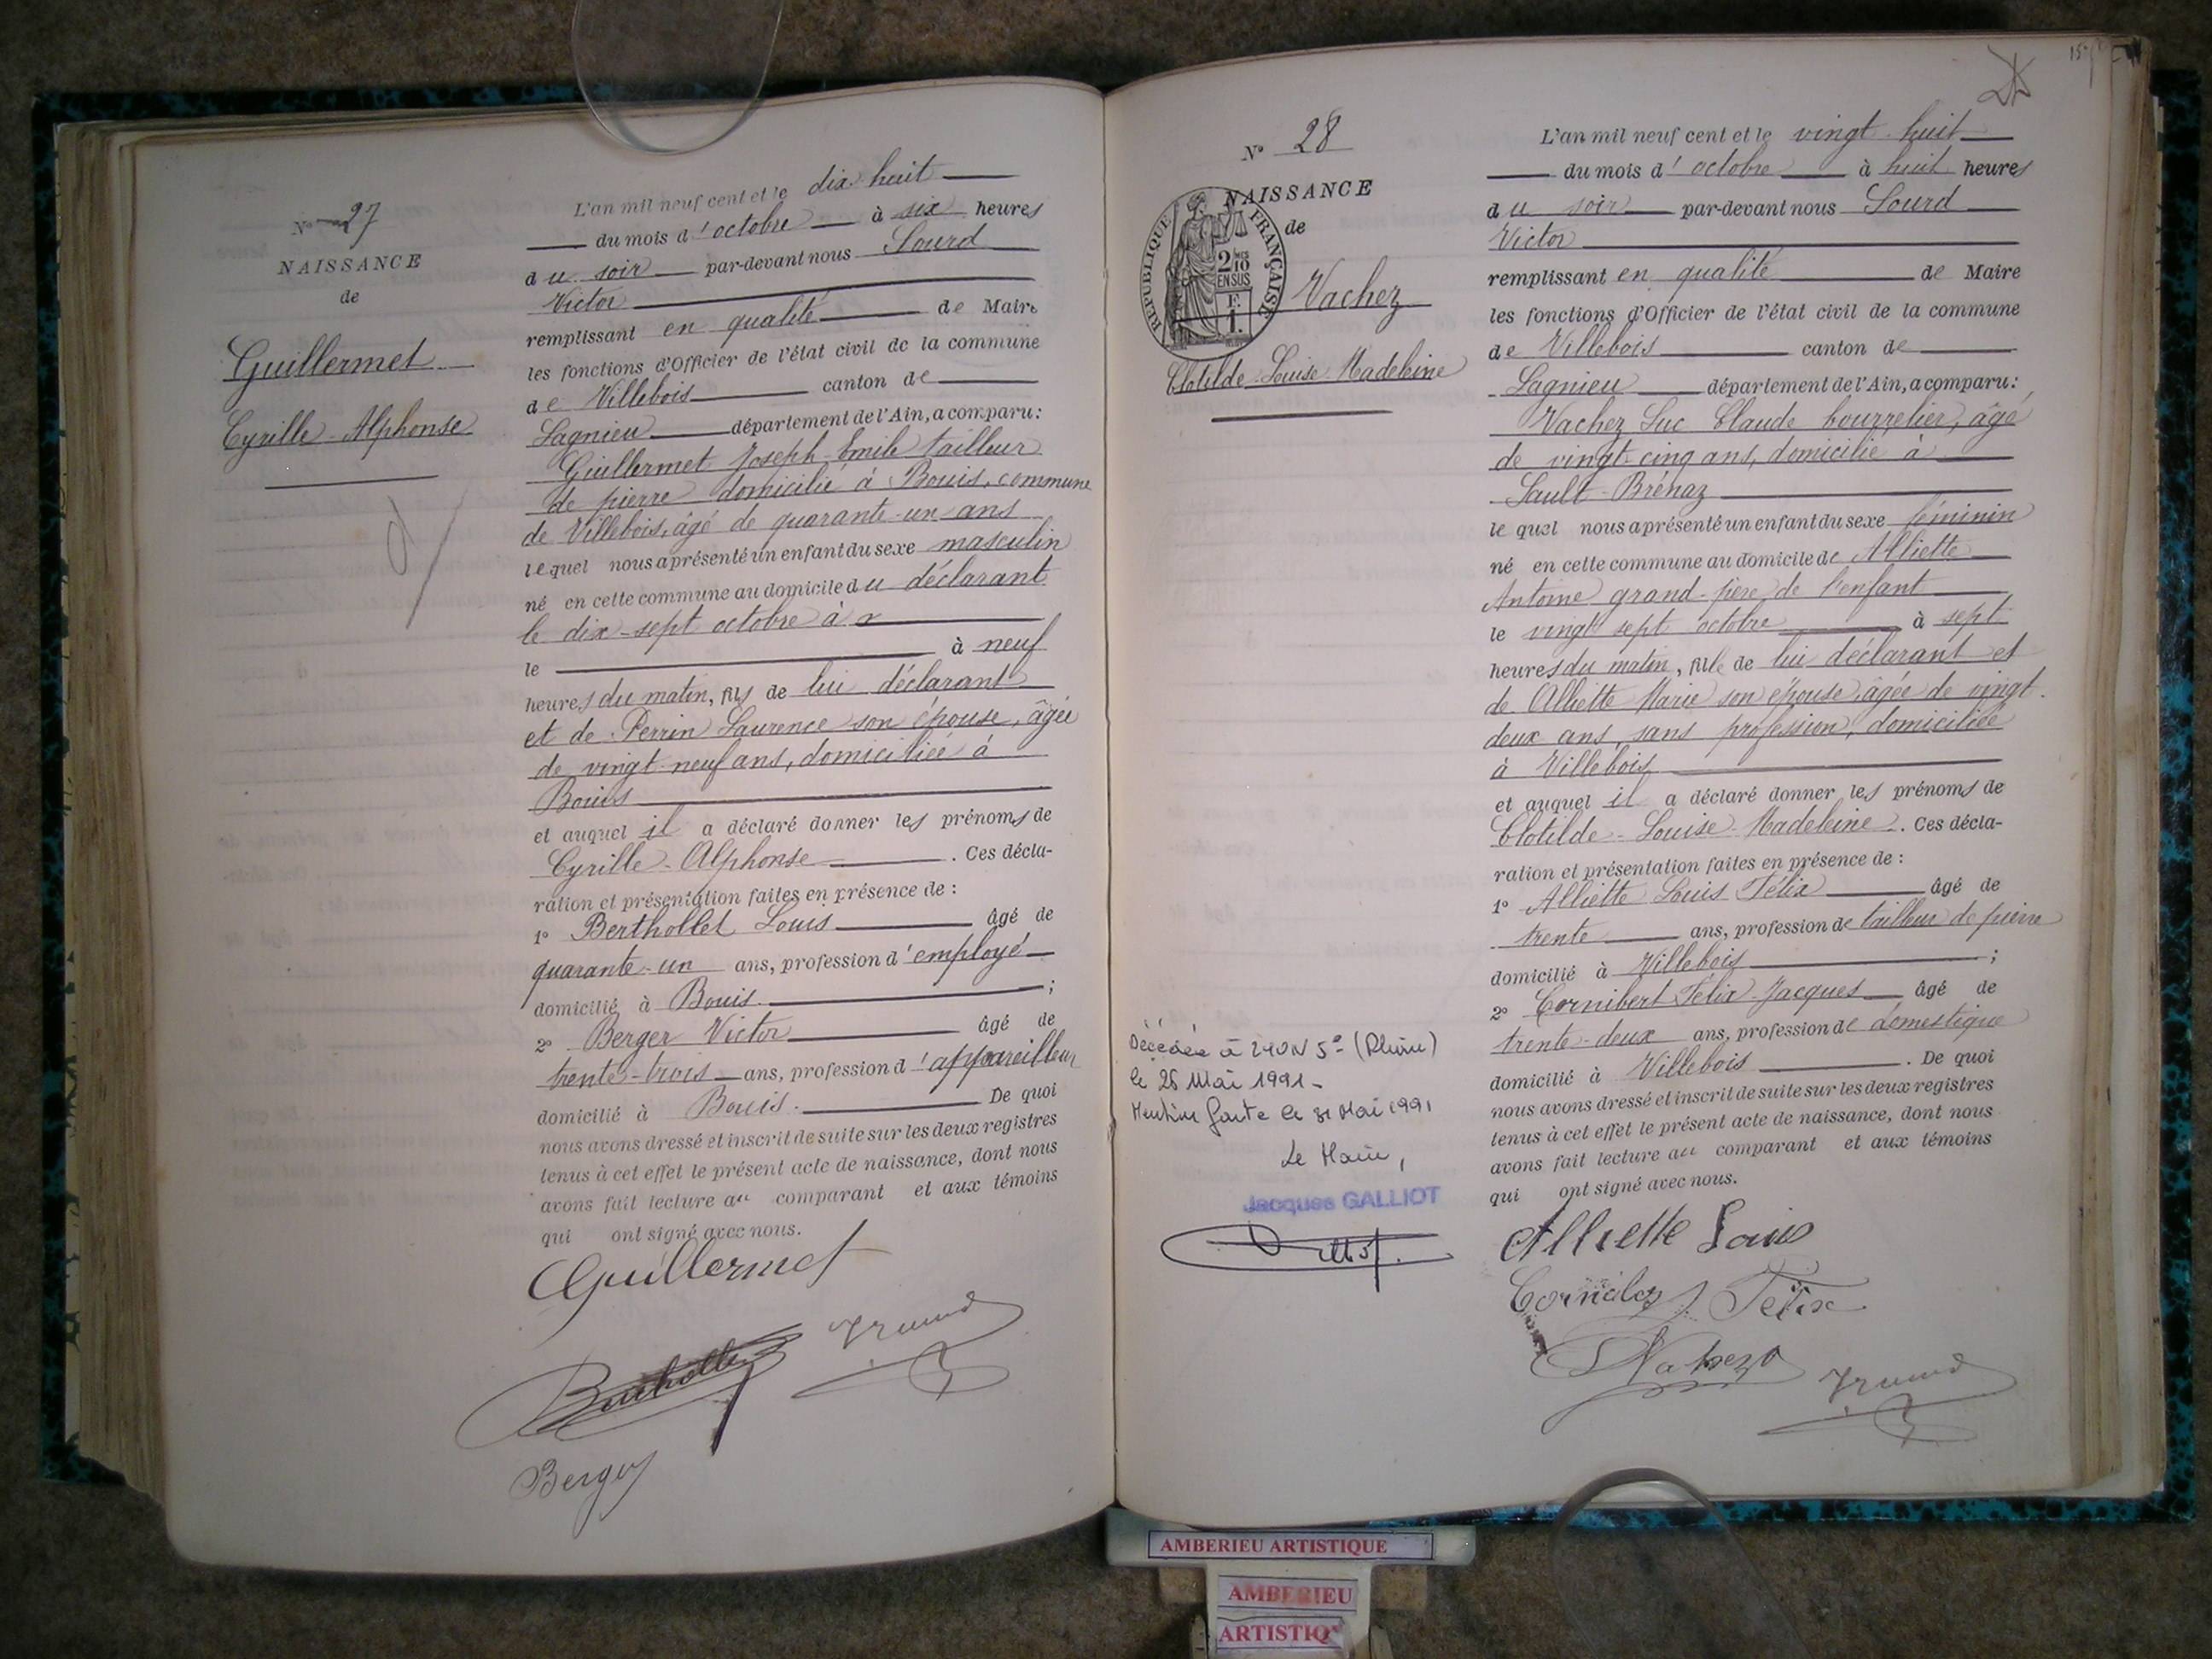 N° 27
NAISSANCE
de
Guillermet
Cyrille-Alphonse
L'an mil neuf cent et le dix-huit
du mois d'octobre à six heures
du soir par-devant nous Sourd
Victor
remplissant en qualité de Maire
les fonctions d'Officier de l'état civil de la commune
de Villebois canton de
Lagnieu département de l'Ain, a comparu:
Guillermet Joseph-Emile tailleur
de pierre domicilié à Bouis, commune
de Villebois, âgé de quarante-un ans
lequel nous a présenté un enfant du sexe masculin
né en cette commune au domicile du déclarant
le dix-sept octobre à
le à neuf
heures du matin, fils de lui déclarant
et de Perrin Laurence son épouse, âgée
de vingt-neuf ans, domiciliée à
Bouis
et auquel il a déclaré donner les prénoms de
Cyrille-Alphonse. Ces décla-
ration et présentation faites en présence de :
1° Berthollet Louis âgé de
quarante-un ans, profession d'employé
domicilié à Bouis ;
2° Berger Victor âgé de
trente-trois ans, profession d'appareilleur
domicilié à Bouis. De quoi
nous avons dressé et inscrit de suite sur les deux registres
tenus à cet effet le présent acte de naissance, dont nous
avons fait lecture au comparant et aux témoins
qui ont signé avec nous.
Guillermet
Berthollet
Berger
15
N° 28
NAISSANCE
de
REPUBLIQUE FRANÇAISE
2 MES
10
EN SUS
F.
1.
Vachez
Clotilde-Louise-Madeleine
L'an mil neuf cent et le vingt-huit
du mois d'octobre à huit heures
du soir par-devant nous Sourd
Victor
remplissant en qualité de Maire
les fonctions d'Officier de l'état civil de la commune
de Villebois canton de
Lagnieu département de l'Ain, a comparu:
Vachez Luc Claude bourrelier, âgé
de vingt-cinq ans, domicilié à
Sault-Brénaz
lequel nous a présenté un enfant du sexe féminin
né en cette commune au domicile de Alliette
Antoine grand-père de l'enfant
le vingt-sept octobre à sept
heures du matin, fille de lui déclarant et
de Alliette Marie son épouse, âgée de vingt-
deux ans, sans profession, domiciliée
à Villebois
et auquel il a déclaré donner les prénoms de
Clotilde-Louise-Madeleine. Ces décla-
ration et présentation faites en présence de :
1° Alliette Louis Félix âgé de
trente ans, profession de tailleur de pierre
domicilié à Villebois ;
2° Cornibert Félix-Jacques âgé de
trente-deux ans, profession de domestique
domicilié à Villebois. De quoi
nous avons dressé et inscrit de suite sur les deux registres
tenus à cet effet le présent acte de naissance, dont nous
avons fait lecture au comparant et aux témoins
qui ont signé avec nous.
Décédée à LYON 5e (Rhône)
le 26 Mai 1991-
Mention faite le 31 Mai 1991
Le Maire,
Jacques GALLIOT
Alliette Louis
Félix
Vachez
AMBERIEU ARTISTIQUE
AMBERIEU
ARTISTIQ